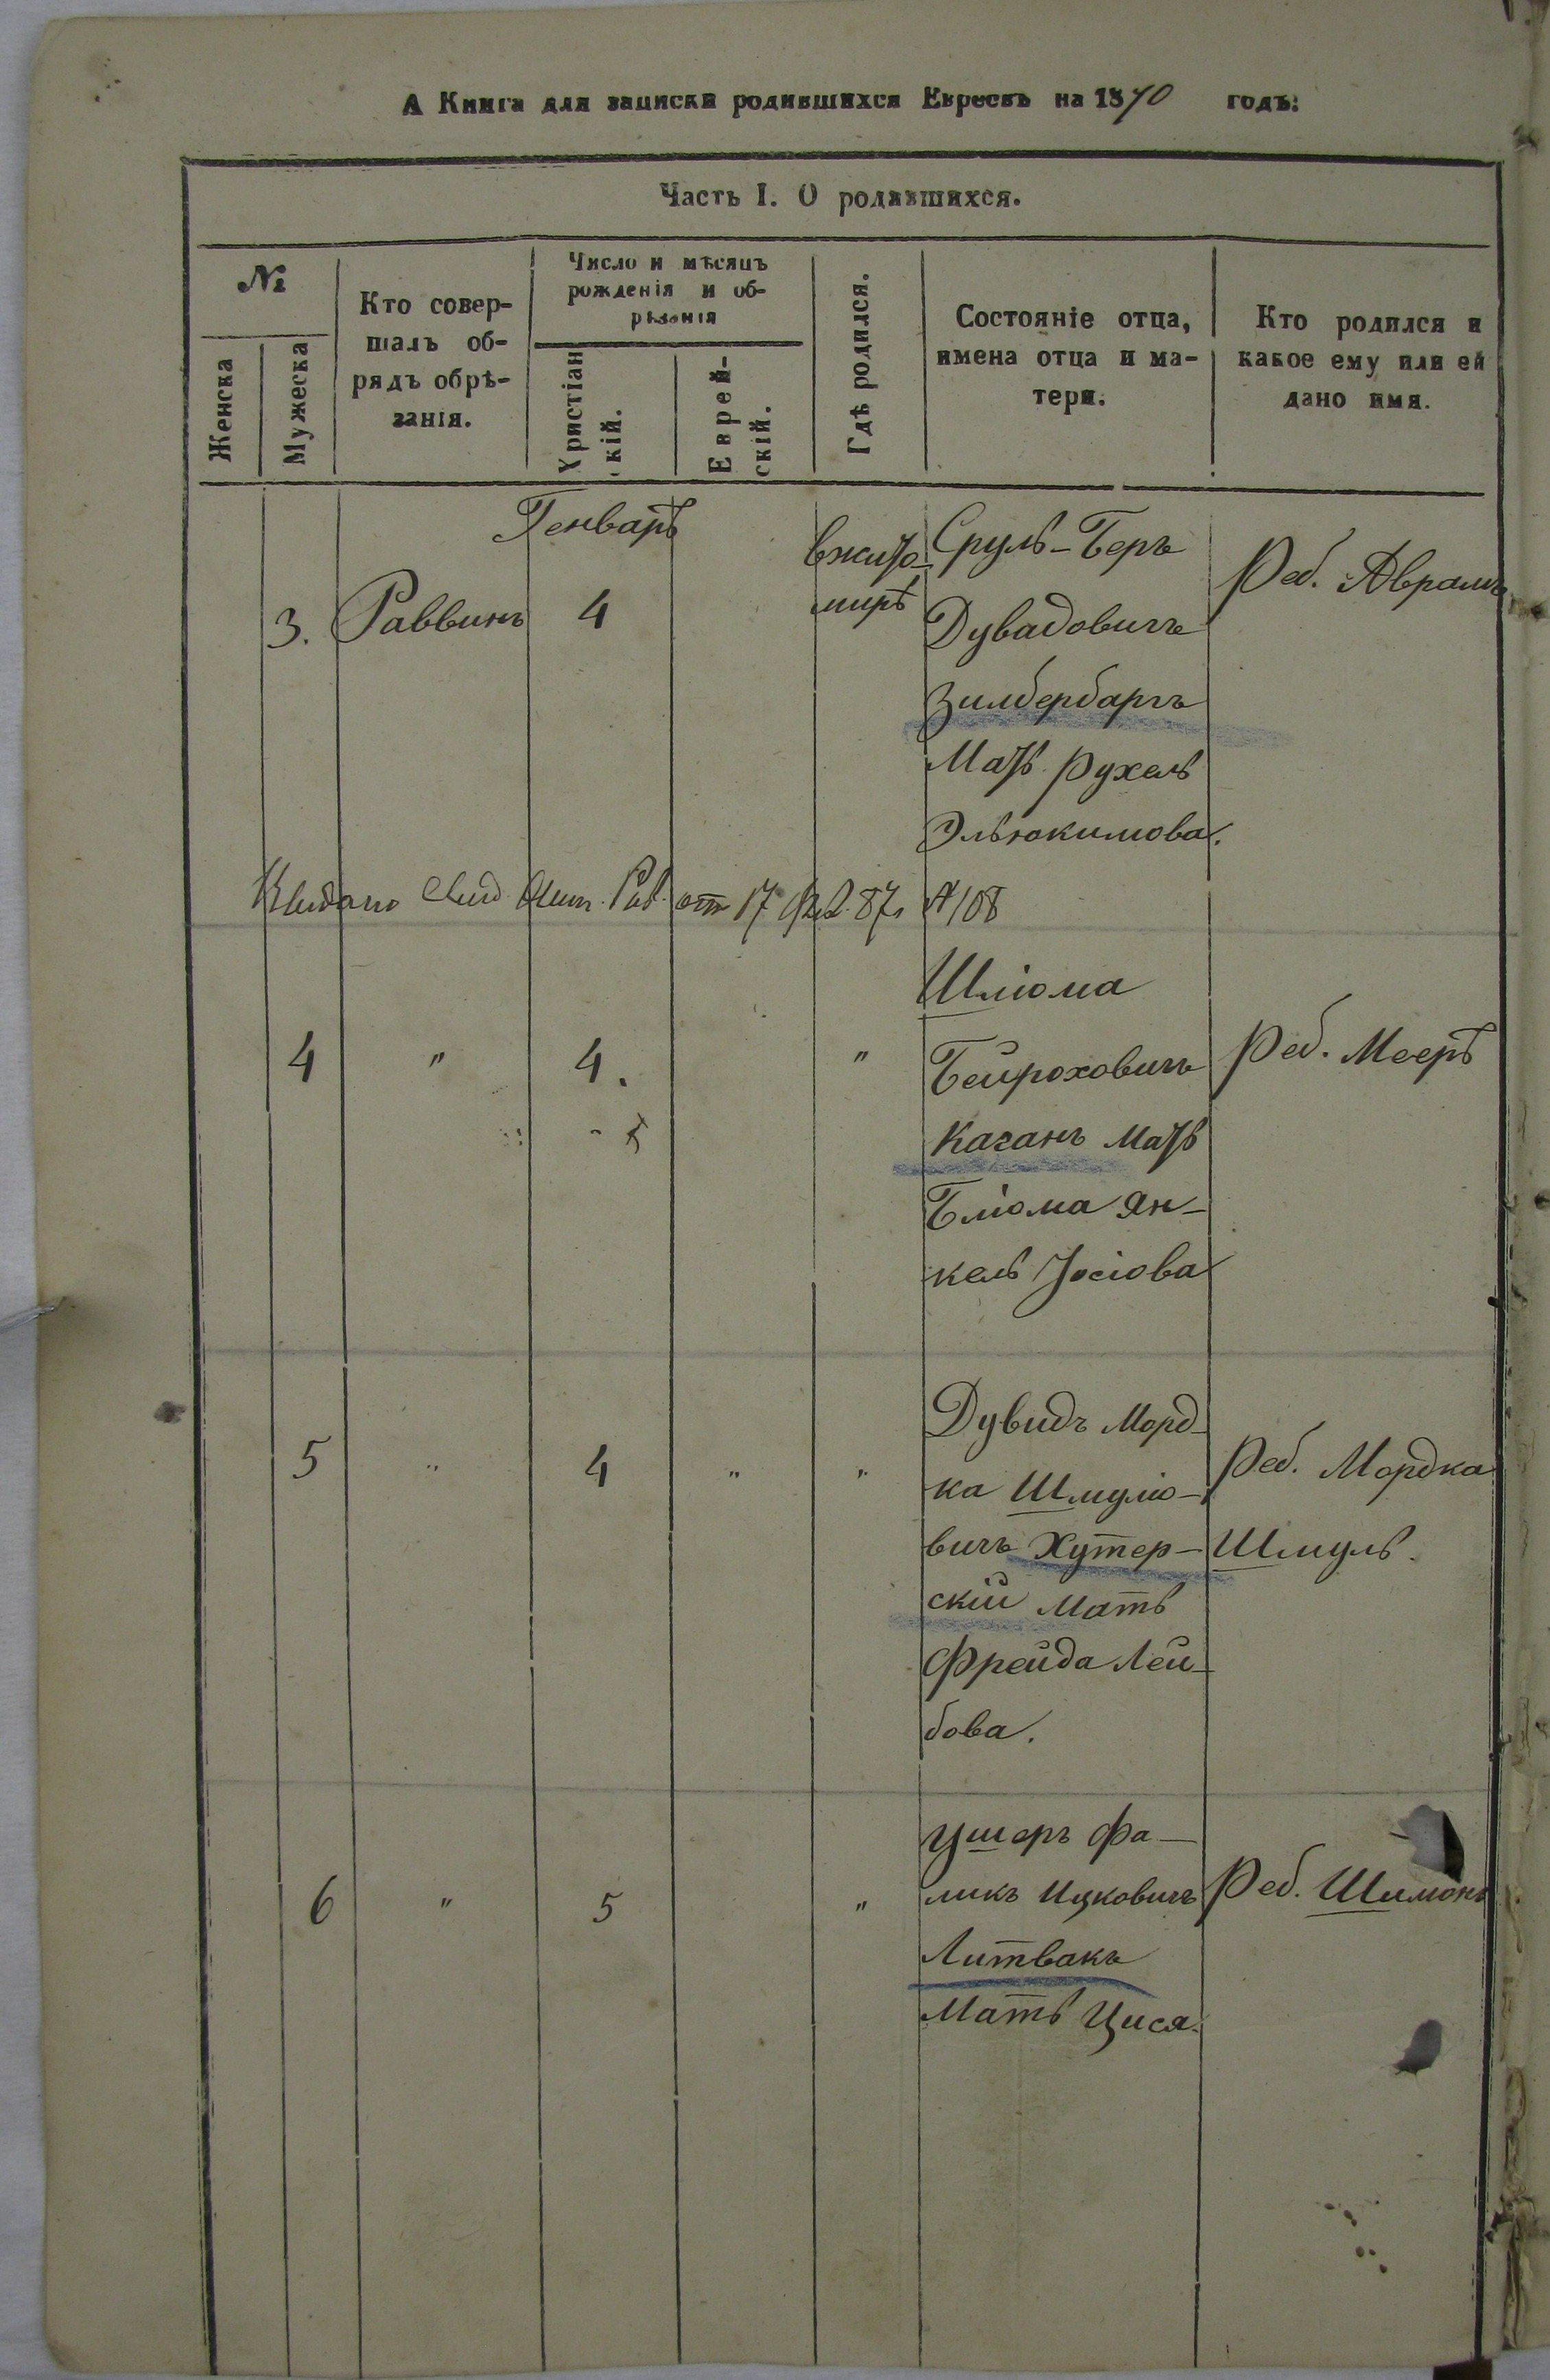 А Книга для записки родившихся Евреевъ на 1870 годъ:
Часть I. О родившихся.
№
Женска
Мужеска
Кто совер-
шалъ об-
рядъ обрѣ-
занія.
Число и мѣсяцъ
рожденія и об-
рѣзанія
Христіан
скій.
Еврей-
скій.
Гдѣ родился.
Состояніе отца,
имена отца и ма-
тери.
Кто родился и
какое ему или ей
дано имя.
Генварь
3. Раввинъ 4
вжито-
мирѣ
Сруль-Беръ
Дувадовичъ
Зилбербаргъ
Мать Рухель
Эльюкимова.
Реб. Аврамъ
Выдано Свид. от 17 87 № 108
4 " 4. "
Шліома
Бейроховичъ
Каганъ Мать
Бліома Ян-
кель Iосіова
Реб. Мееръ
5 " 4 " "
Дувидъ Морд-
ка Шмуліо-
вичъ Хутер-
скій Мать
Фрейда Лей-
бова.
Реб. Мордка
Шмуль.
6 " 5 "
Ушеръ Фа-
ликъ Ицковичъ
Литвакъ
Мать Цися.
Реб. Шимонъ